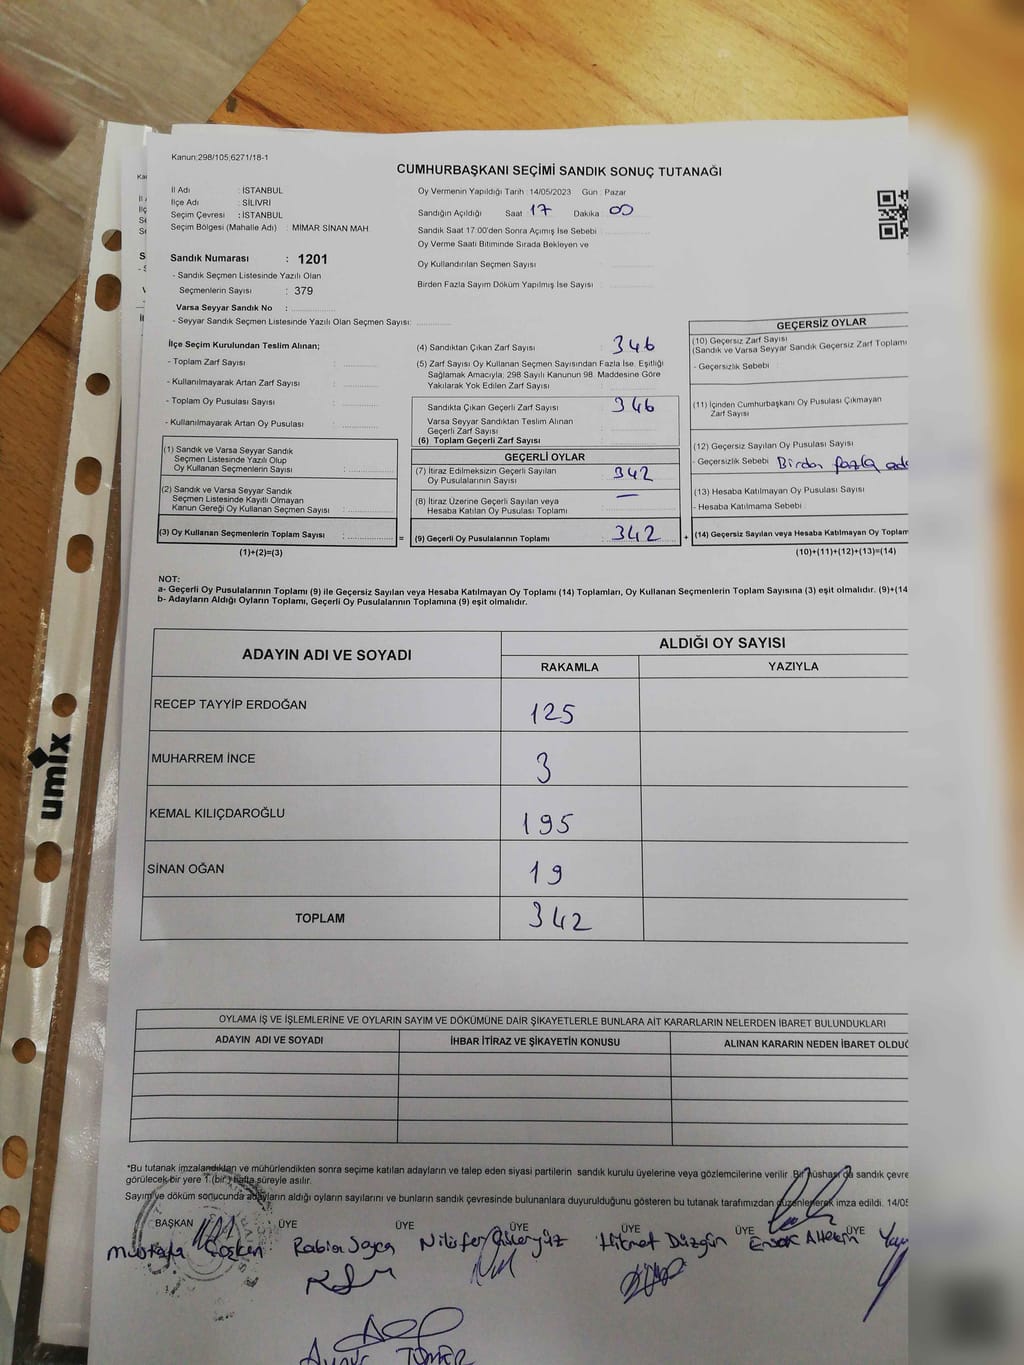 Kanun:298/105;6271/18-1
CUMHURBAŞKANI SEÇİMİ SANDIK SONUÇ TUTANAĞI
İl Adı : İSTANBUL
İlçe Adı : SİLİVRİ
Seçim Çevresi : İSTANBUL
Seçim Bölgesi (Mahalle Adı) : MİMAR SİNAN MAH
Sandık Numarası : 1201
- Sandık Seçmen Listesinde Yazılı Olan
Seçmenlerin Sayısı : 379
Varsa Seyyar Sandık No :
- Seyyar Sandık Seçmen Listesinde Yazılı Olan Seçmen Sayısı:
Oy Vermenin Yapıldığı Tarih :14/05/2023 Gün : Pazar
Sandığın Açıldığı Saat 17 Dakika 00
Sandık Saat 17:00'den Sonra Açımış İse Sebebi
Oy Verme Saati Bitiminde Sırada Bekleyen ve
Oy Kullandırılan Seçmen Sayısı
Birden Fazla Sayım Döküm Yapılmış İse Sayısı
İlçe Seçim Kurulundan Teslim Alınan;
- Toplam Zarf Sayısı :
- Kullanılmayarak Artan Zarf Sayısı :
- Toplam Oy Pusulası Sayısı :
- Kullanılmayarak Artan Oy Pusulası :
(1) Sandık ve Varsa Seyyar Sandık
Seçmen Listesinde Yazılı Olup
Oy Kullanan Seçmenlerin Sayısı :
(2) Sandık ve Varsa Seyyar Sandık
Seçmen Listesinde Kayıtlı Olmayan
Kanun Gereği Oy Kullanan Seçmen Sayısı :
(3) Oy Kullanan Seçmenlerin Toplam Sayısı :
(1)+(2)=(3)
(4) Sandıktan Çıkan Zarf Sayısı : 346
(5) Zarf Sayısı Oy Kullanan Seçmen Sayısından Fazla İse, Eşitliği
Sağlamak Amacıyla; 298 Sayılı Kanunun 98. Maddesine Göre
Yakılarak Yok Edilen Zarf Sayısı :
Sandıkta Çıkan Geçerli Zarf Sayısı : 346
Varsa Seyyar Sandıktan Teslim Alınan
Geçerli Zarf Sayısı :
(6) Toplam Geçerli Zarf Sayısı :
GEÇERLİ OYLAR
(7) İtiraz Edilmeksizin Geçerli Sayılan
Oy Pusulalarının Sayısı : 342
(8) İtiraz Üzerine Geçerli Sayılan veya
Hesaba Katılan Oy Pusulası Toplamı : —
= (9) Geçerli Oy Pusulalarının Toplamı : 342 +
GEÇERSİZ OYLAR
(10) Geçersiz Zarf Sayısı
(Sandık ve Varsa Seyyar Sandık Geçersiz Zarf Toplamı
- Geçersizlik Sebebi
(11) İçinden Cumhurbaşkanı Oy Pusulası Çıkmayan
Zarf Sayısı
(12) Geçersiz Sayılan Oy Pusulası Sayısı
- Geçersizlik Sebebi Birden fazla
(13) Hesaba Katılmayan Oy Pusulası Sayısı
- Hesaba Katılmama Sebebi
(14) Geçersiz Sayılan veya Hesaba Katılmayan Oy Toplam
(10)+(11)+(12)+(13)=(14)
NOT:
a- Geçerli Oy Pusulalarının Toplamı (9) ile Geçersiz Sayılan veya Hesaba Katılmayan Oy Toplamı (14) Toplamları, Oy Kullanan Seçmenlerin Toplam Sayısına (3) eşit olmalıdır. (9)+(14
b- Adayların Aldığı Oyların Toplamı, Geçerli Oy Pusulalarının Toplamına (9) eşit olmalıdır.
ADAYIN ADI VE SOYADI ALDIĞI OY SAYISI
RAKAMLA YAZIYLA
RECEP TAYYİP ERDOĞAN 125
MUHARREM İNCE 3
KEMAL KILIÇDAROĞLU 195
SİNAN OĞAN 19
TOPLAM 342
OYLAMA İŞ VE İŞLEMLERİNE VE OYLARIN SAYIM VE DÖKÜMÜNE DAİR ŞİKAYETLERLE BUNLARA AİT KARARLARIN NELERDEN İBARET BULUNDUKLARI
ADAYIN ADI VE SOYADI İHBAR İTİRAZ VE ŞİKAYETİN KONUSU ALINAN KARARIN NEDEN İBARET OLDUĞ
*Bu tutanak imzalandıktan ve mühürlendikten sonra seçime katılan adayların ve talep eden siyasi partilerin sandık kurulu üyelerine veya gözlemcilerine verilir. Bir nüshası da sandık çevre
görülecek bir yere 1 (bir) hafta süreyle asılır.
Sayım ve döküm sonucunda adayların aldığı oyların sayılarını ve bunların sandık çevresinde bulunanlara duyurulduğunu gösteren bu tutanak tarafımızdan düzenlenerek imza edildi. 14/05
BAŞKAN ÜYE ÜYE ÜYE ÜYE ÜYE ÜYE
Mustafa Coşkun Rabia Nilüfer Hikmet Düzgün
umix